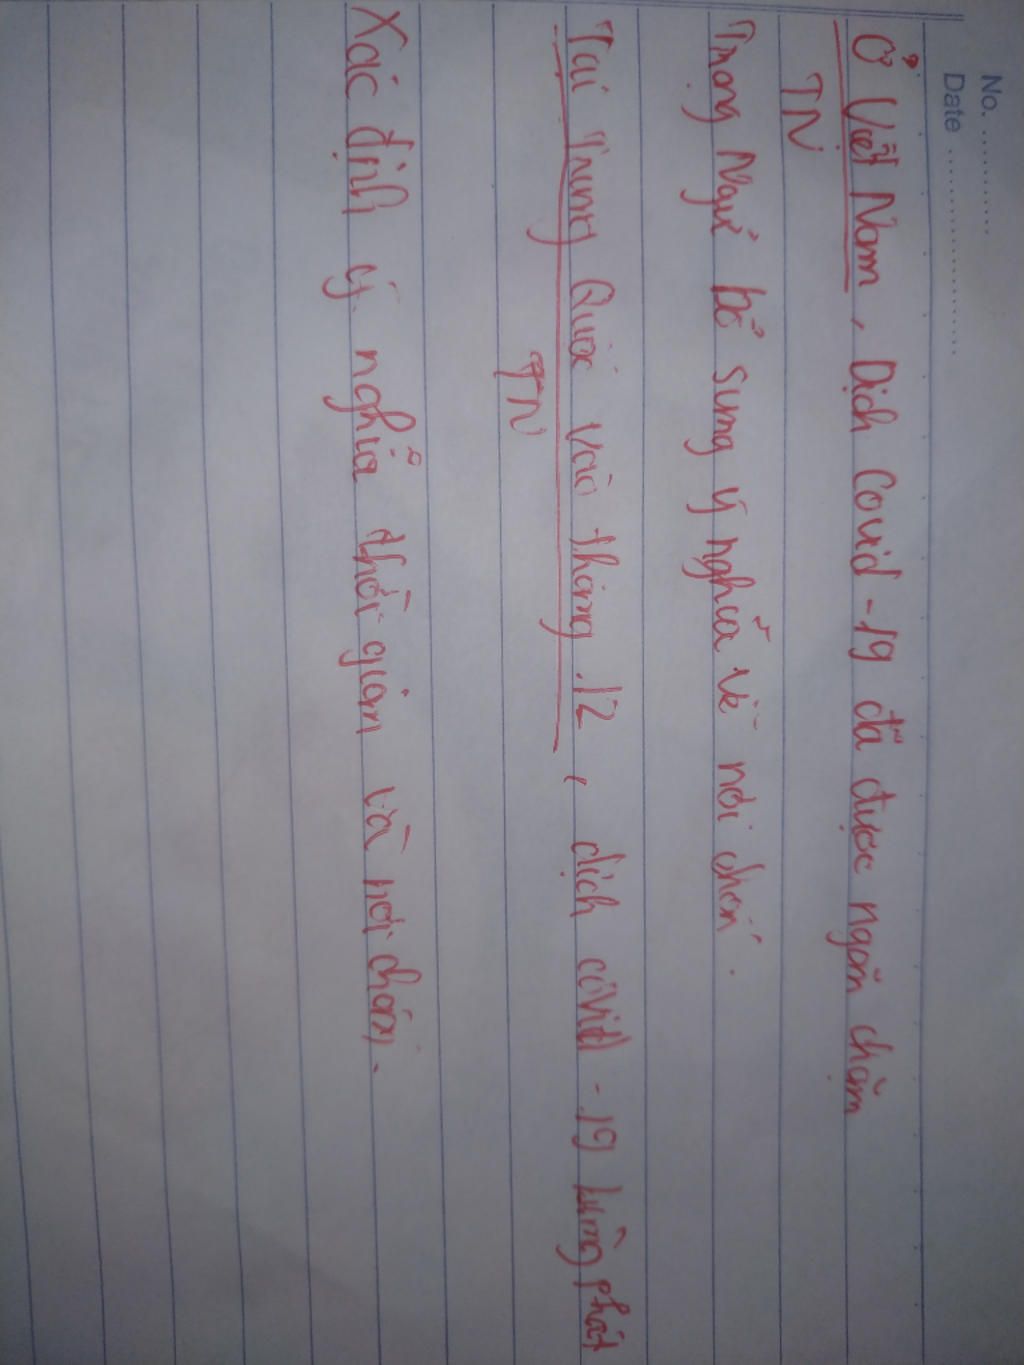 No. ..........
Date ........................
Ở Việt Nam, Dịch Covid-19 đã được ngăn chặn
TN
Trạng Ngữ bổ sung ý nghĩa về nơi chốn.
Tại Trung Quốc vào tháng 12, dịch covid-19 bùng phát
TN
Xác định ý nghĩa thời gian và nơi chốn.